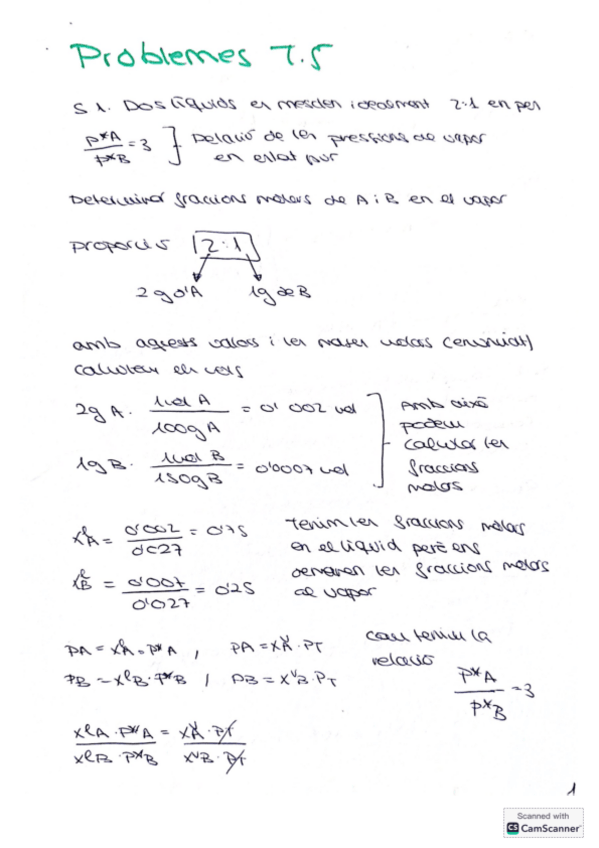 Problemes T.5
S 1. Dos líquids es mesclen idealment 2:1 en pes
P*A / P*B = 3 ] Relació de les pressions de vapor
en estat pur
Determinar fraccions molars de A i B en el vapor
proporció 2:1
2g d'A 1g de B
amb aquests valors i les masses molars (enunciat)
calculem els mols
2g A · 1mol A / 100g A = 0'002 mol
1g B · 1mol B / 150g B = 0'0007 mol
Amb això
podem
calcular les
fraccions
molars
xˡA = 0'002 / 0'027 = 0'75
xˡB = 0'007 / 0'027 = 0'25
Tenim les fraccions molars
en el líquid però ens
demanen les fraccions molars
al vapor
PA = xˡA · P*A , PA = xᵛA · PT
PB = xˡB · P*B , PB = xᵛB · PT
com tenim la
relació
P*A / P*B = 3
xˡA · P*A / xˡB · P*B = xᵛA · PT / xᵛB · PT
1
Scanned with
CS CamScanner